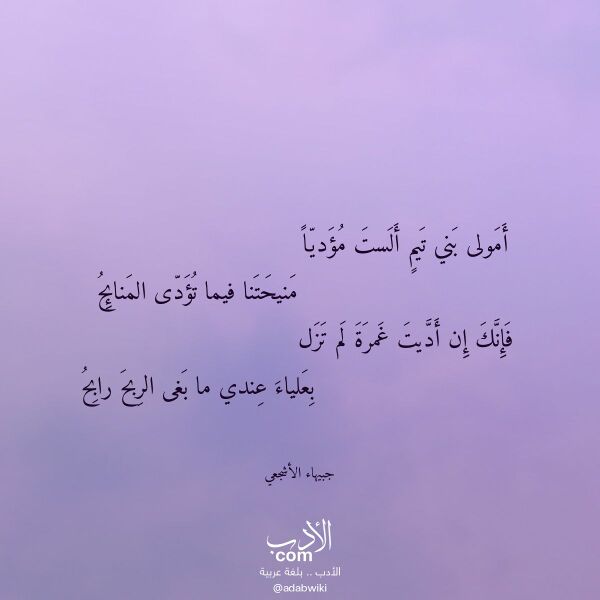 أَمَولى بَني تَيمٍ أَلَستَ مُؤَديّاً
مَنيحَتَنا فيما تُؤَدّى المَنائِحُ
فَإِنَّكَ إِن أَدَّيتَ غَمرَةَ لَم تَزَل
بِعَلياءَ عِندي ما بَغى الرِبحَ رابِحُ
جبيهاء الأشجعي
الأدب
com
الأدب .. بلغة عربية
@adabwiki